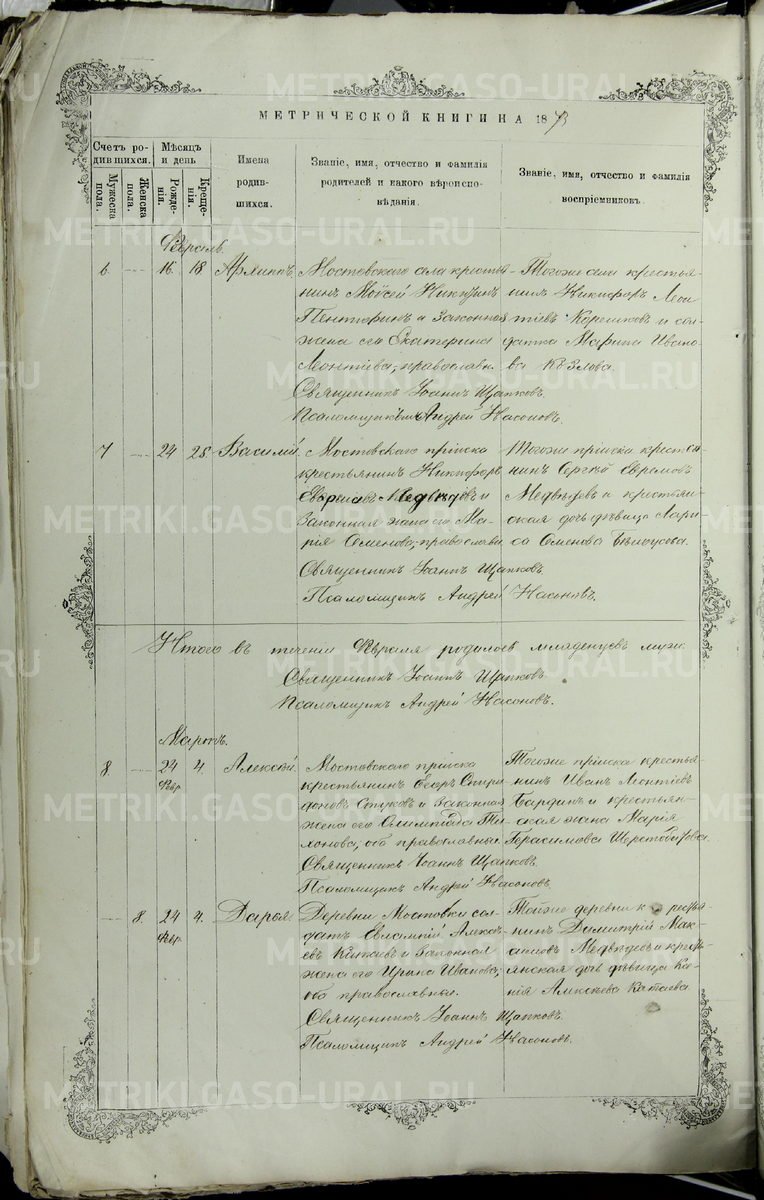 МЕТРИЧЕСКОЙ КНИГИ НА 1873
Счетъ родившихся.
Мужеска пола.
Женска пола.
Мѣсяцъ и день
Рожденія.
Крещенія.
Имена родившихся.
Званіе, имя, отчество и фамилія родителей и какого вѣроисповѣданія.
Званіе, имя, отчество и фамилія воспріемниковъ.
Февраль.
6 16 18
Мостовскаго села крестья-
нинъ Моисей
и Законная
жена его Екатерина
Леонтіева, православн.
Священникъ Іоаннъ Щапковъ.
Псаломщикъ Андрей Насоновъ.
Тогоже села крестья-
нинъ Никифоръ Леон
тіевъ и сол-
датка Марина Ивано-
ва Козлова.
7 24 25 Василій.
Мостовскаго пріиска
крестьянинъ Никифоръ
Медвѣдевъ и
Законная жена его Ма-
рія Семенова, православн.
Священникъ Іоаннъ Щапковъ
Псаломщикъ Андрей Насоновъ.
Тогоже пріиска крестья
нинъ Сергѣй
Медвѣдевъ и крестьян-
ская дочь дѣвица
са Семенова Бѣлоусова.
Итого въ теченіи Февраля родилось младенцевъ муж.
Священникъ Іоаннъ Щапковъ.
Псаломщикъ Андрей Насоновъ.
Мартъ.
8 24 4. Алексѣй.
Февр.
Мостовскаго пріиска
крестьянинъ Егоръ Спири-
доновъ и Законная
жена его Олимпіада Ти-
хонова, оба православные.
Священникъ Іоаннъ Щапковъ.
Псаломщикъ Андрей Насоновъ.
Тогоже пріиска крестья-
нинъ Иванъ Леонтіевъ
Бардинъ и крестьян-
ская жена Марія
Герасимова Шерстобитова.
8. 24 4. Дарья.
Февр.
Деревни Мостовки сол-
датъ Евлампій Алексѣ-
евъ и Законная
жена его Ирина Иванова,
оба православные.
Священникъ Іоаннъ Щапковъ.
Псаломщикъ Андрей Насоновъ.
Тойже деревни крестья-
нинъ Димитрій Мак-
симовъ Медвѣдевъ и кресть-
янская дочь дѣвица
Алексѣева Катаева.
METRIKI.GASO-URAL.RU